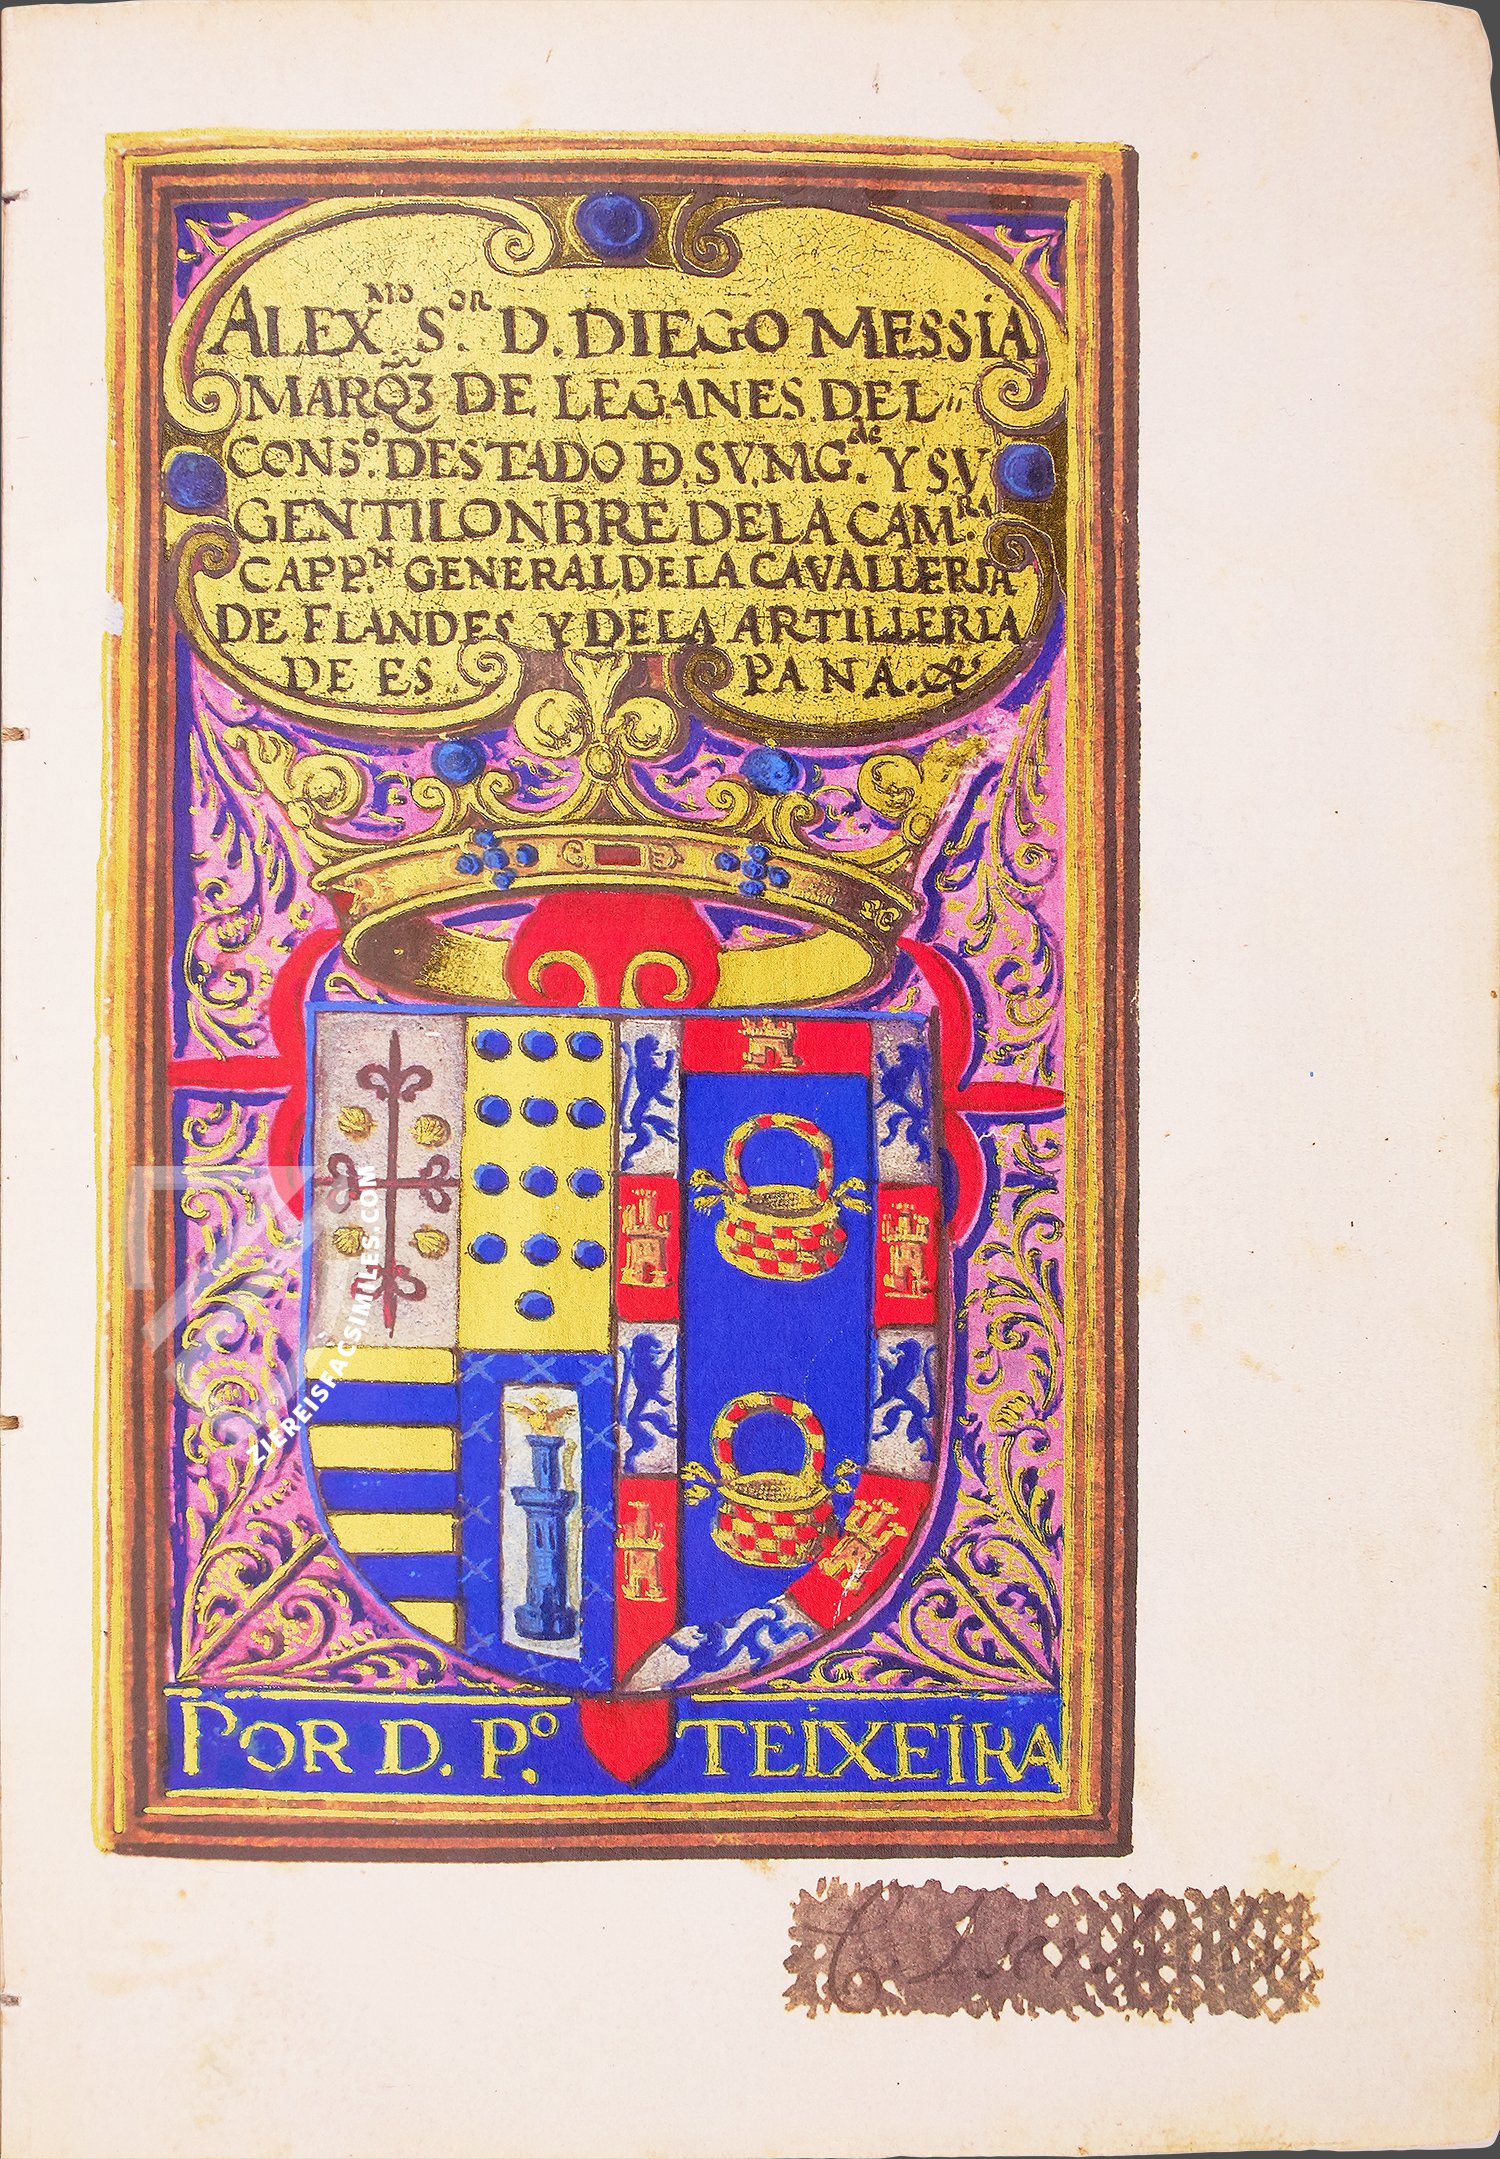 ALEX.ᴹᴼ S.ᴼᴿ D. DIEGO MESSIA
MARQ̃Z DE LEGANES DEL
CONSº. DESTADO Đ. SV. MG.ᵈᵉ Y SV
GENTILONBRE DE LA CAM.ᴿᴬ
CAPP.ᴺ GENERAL DE LA CAVALLERIA
DE FLANDES Y DE LA ARTILLERIA
DE ES PANA. &
POR D. Pº. TEIXEIRA
ZIEREISFACSIMILES.COM